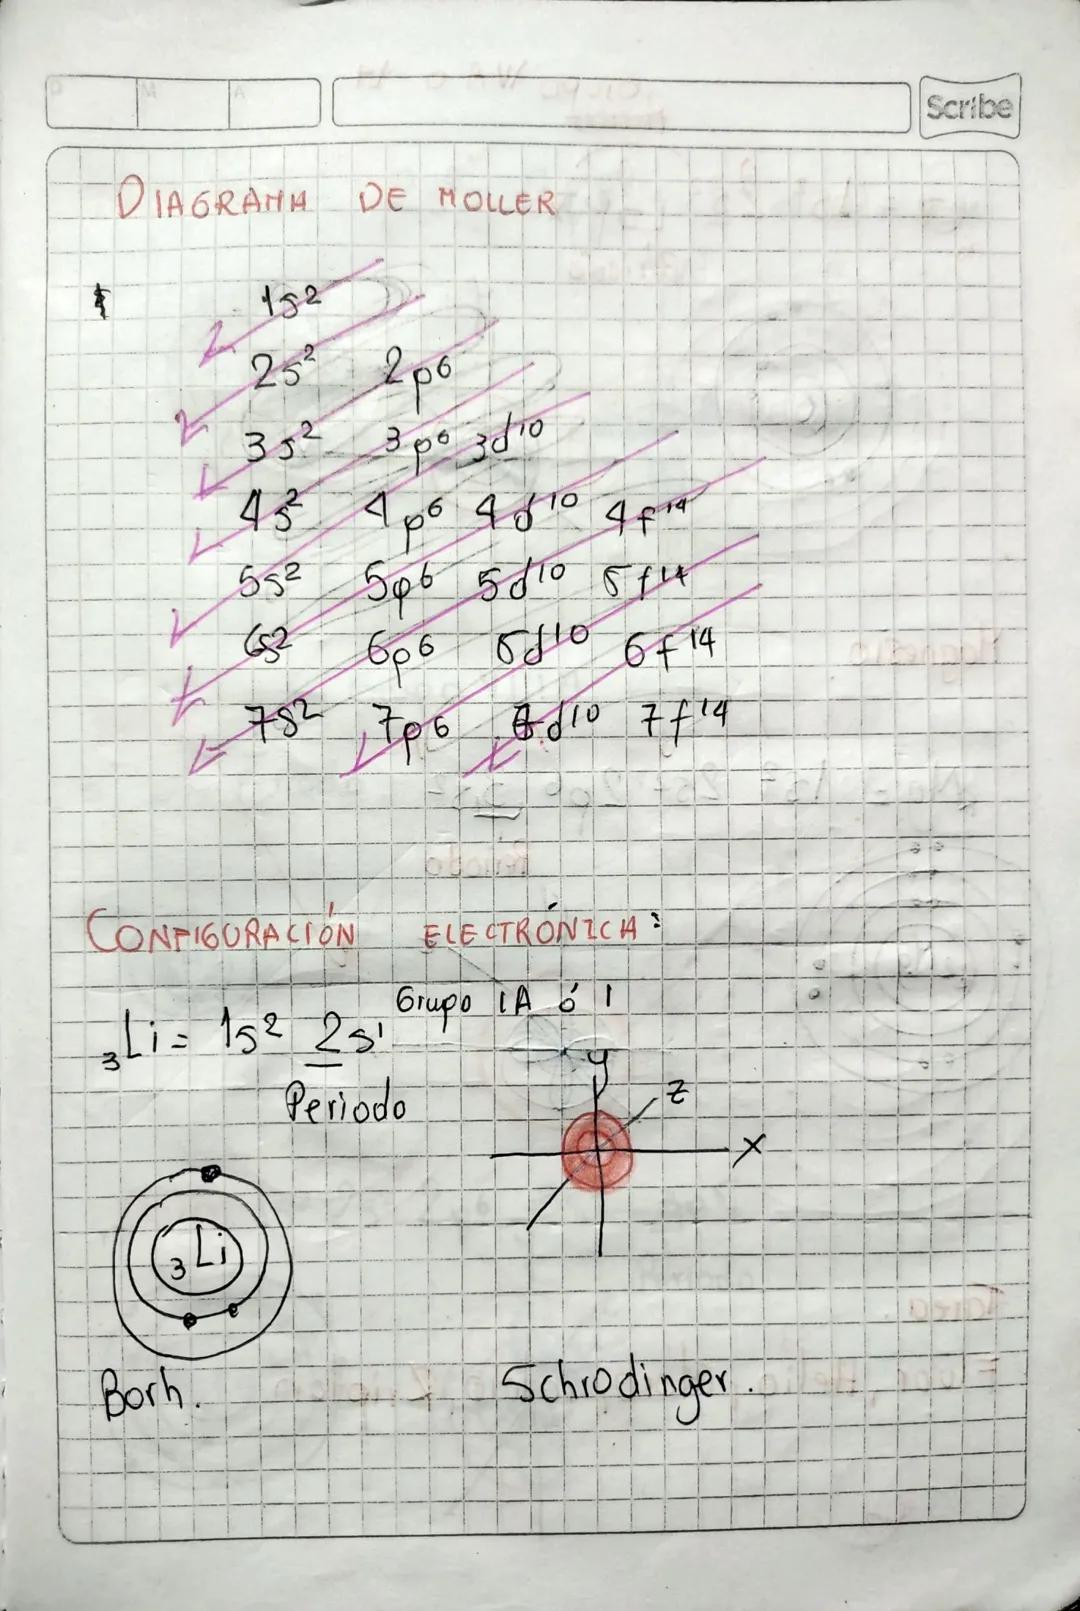 Scribe
DIAGRAMA DE MOLLER
1s²
2s² 2p⁶
3s² 3p⁶ 3d¹⁰
4s² 4p⁶ 4d¹⁰ 4f¹⁴
5s² 5p⁶ 5d¹⁰ 5f¹⁴
6s² 6p⁶ 6d¹⁰ 6f¹⁴
7s² 7p⁶ 7d¹⁰ 7f¹⁴
CONFIGURACIÓN ELECTRÓNICA:
Grupo 1A ó 1
₃Li = 1s² 2s¹
Periodo
y
z
x
₃Li
Borh.
Schrodinger.